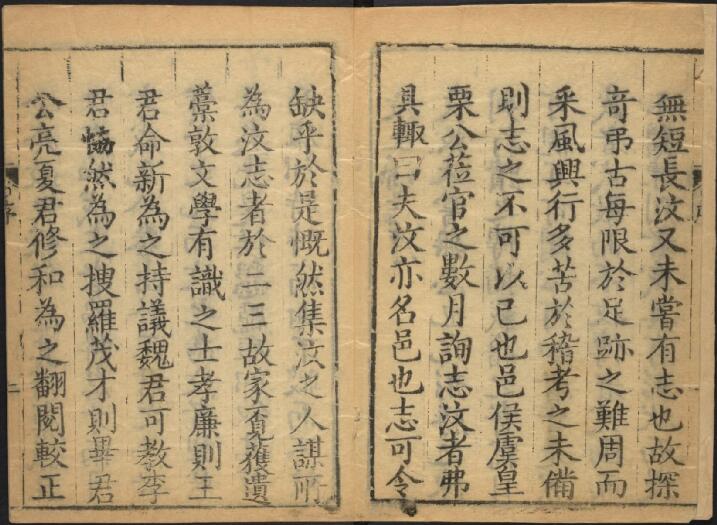 無短長汶又未嘗有志也故探
竒弔古每限於足跡之難周而
采風興行多苦於稽考之未備
則志之不可以已也邑侯虞皇
栗公蒞官之數月詢志汶者弗
具輙曰夫汶亦名邑也志可令
缺乎於是慨然集汶之人謀所
為汶志者於二三故家覔獲遺
藳敦文學有識之士孝廉則王
君命新為之持議魏君可教李
君然為之搜羅茂才則畢君
公亮夏君修和為之翻閱較正
序
二